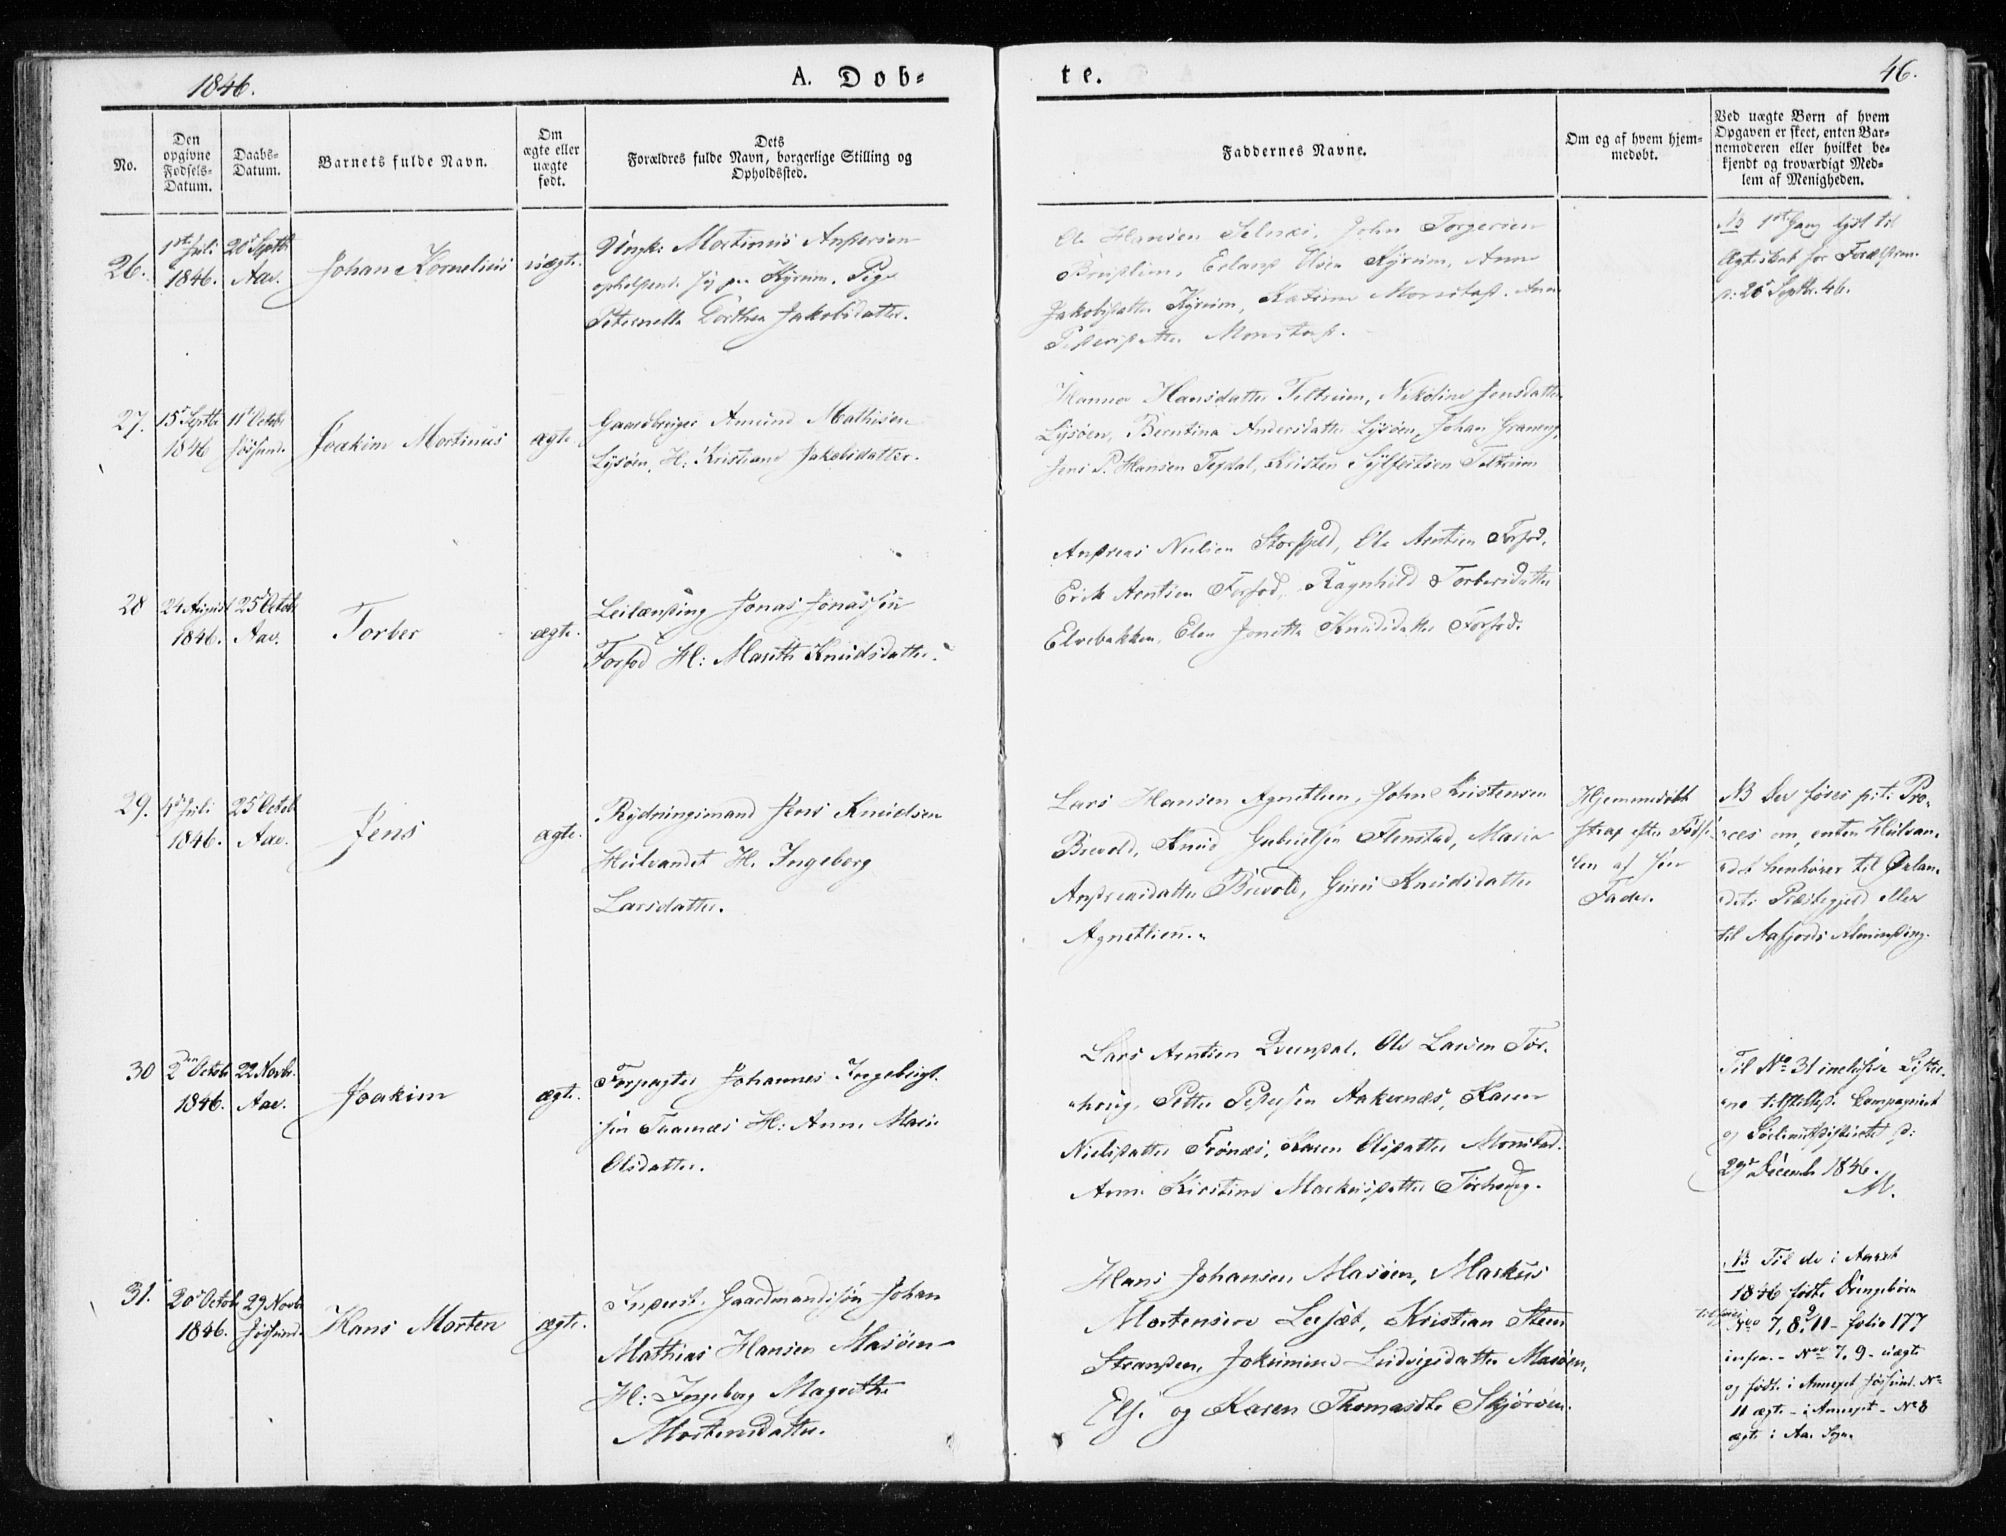 1846.
A. Døb-
te.
46.
No.
Den opgivne Fødsels-Datum.
Daabs-Datum.
Barnets fulde Navn.
Om ægte eller uægte født.
Dets Forældres fulde Navn, borgerlige Stilling og Opholdssted.
Faddernes Navne.
Om og af hvem hjem-medøbt.
Ved uægte Børn af hvem Opgaven er skeet, enten Bar-nemoderen eller hvilket be-kjendt og troværdigt Med-lem af Menigheden.
26.
1st Juli
1846.
20 Septb
Aae.
Johan Kornelius
uægte.
Ungk: Martinus Andersen
opholdende sig paa Kyrem. Pige
Peternella Dorthea Jakobsdatter.
Ole Hansen Selnæs, John Torgersen
Erland Olsen Kyrem, Anne
Jakobsdatter Kyrem,
Pedersdatter Monstad.
NB 1ste Gang lyst til
Ægteskab for
20 Septb. 46.
27.
15 Septb
1846
11 Octob
Jøssund.
Joakim Martinus
ægte.
Gaardbruger Amund Mathisen
Lysøen, H: Kristiane Jakobsdatter.
Hanna Hansdatter Teltrum, Nikoline Jensdatter
Lysøen, Berntina Andersdatter Lysøen, Johan Graneng,
Jens P. Hansen Teksdal, Kristen Sylfestsen Teltrum
28
24 August
1846.
25 Octob
Aae.
Torber
ægte.
Leilænding Jonas Jonassen
Forfod H: Marith Knudsdatter.
Andreas Nielsen Storfjeld, Ole Arntsen Forfod,
Erik Arntsen Forfod, Ragnhild Torbersdatter
Elvebakken, Elen Jonetta Knudsdatter Forfod.
29.
4 Juli
1846.
25 Octob
Aae.
Jens
ægte.
Rydningsmand Jens Knudsen
Hulvandet H. Ingeborg
Larsdatter.
Lars Hansen Agnetlien, John Kristensen
Brevold, Knud Gabrielsen Stenstad, Maria
Andreasdatter Brevold, Guru Knudsdatter
Agnetlien.
Hjemmedøbt
strax efter Føds-
len af sin
Fader.
NB Der føres p.t. Pro-
ces om, enten Hulvan-
det henhører til Ørlan-
dets Præstegjeld eller
til Aafjords Alminding.
30
2den Octob
1846.
22 Novbr.
Aae.
Joakim
ægte.
Forpagter Johannes Ingebrigt-
sen H: Anne Marie
Olsdatter.
Lars Arntsen Ole Larsen Tør-
houg, Petter Pedersen Aakernæs, Karen
Nielsdatter Frønæs, Karen Olsdatter Monstad.
Anne Kirstine Markusdatter Tørhoug.
Til No 31 inclusive Lister-
ne tilstillede Compagniet
og Sørlimitsdistrictet d:
29 Decemb 1846.
M.
31.
20 Octob
1846.
29 Novb
Jøssund.
Hans Morten
ægte.
Inderst, Gaardmandssøn Johan
Mathias Hansen Masøen
H: Ingeborg Magrethe
Mortensdatter.
Hans Johansen Masøen, Markus
Mortensen Kristian Steen
Stranden, Jokumine Ludvigsdatter Masøen,
Else og Karen Thomasdtr Skjørøen.
NB Til de i Aaret
1846 fødte Drengebørn
tilføies
Noo 7, 8, 9, 11 - folio 177
infra. - Noo 7, 9 - uægte
og fødte i Annexet Jøssund. No
11 ægte - i Annexet - No 8
ægte i Aa. Sogn.